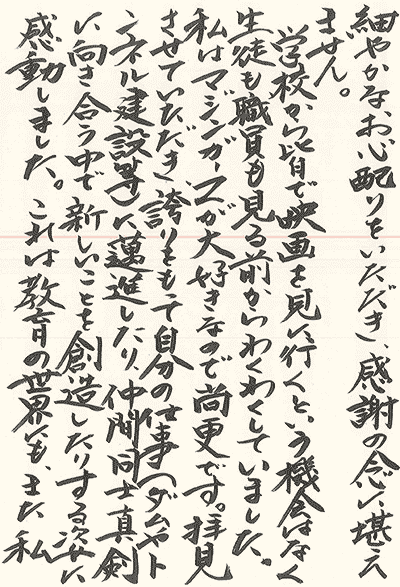 細やかなお心配りをいただき、感謝の念に堪え
ません。
学校から皆で映画を見に行くという機会はなく
生徒も職員も見る前からわくわくしていました。
私はマジンガーZが大好きなので尚更です。拝見
させていただき、誇りをもって自分の仕事（ダムやト
ンネル建設等）に邁進したり、仲間同士真剣
に向き合う中で新しいことを創造したりする姿に
感動しました。これは教育の世界にも、また私